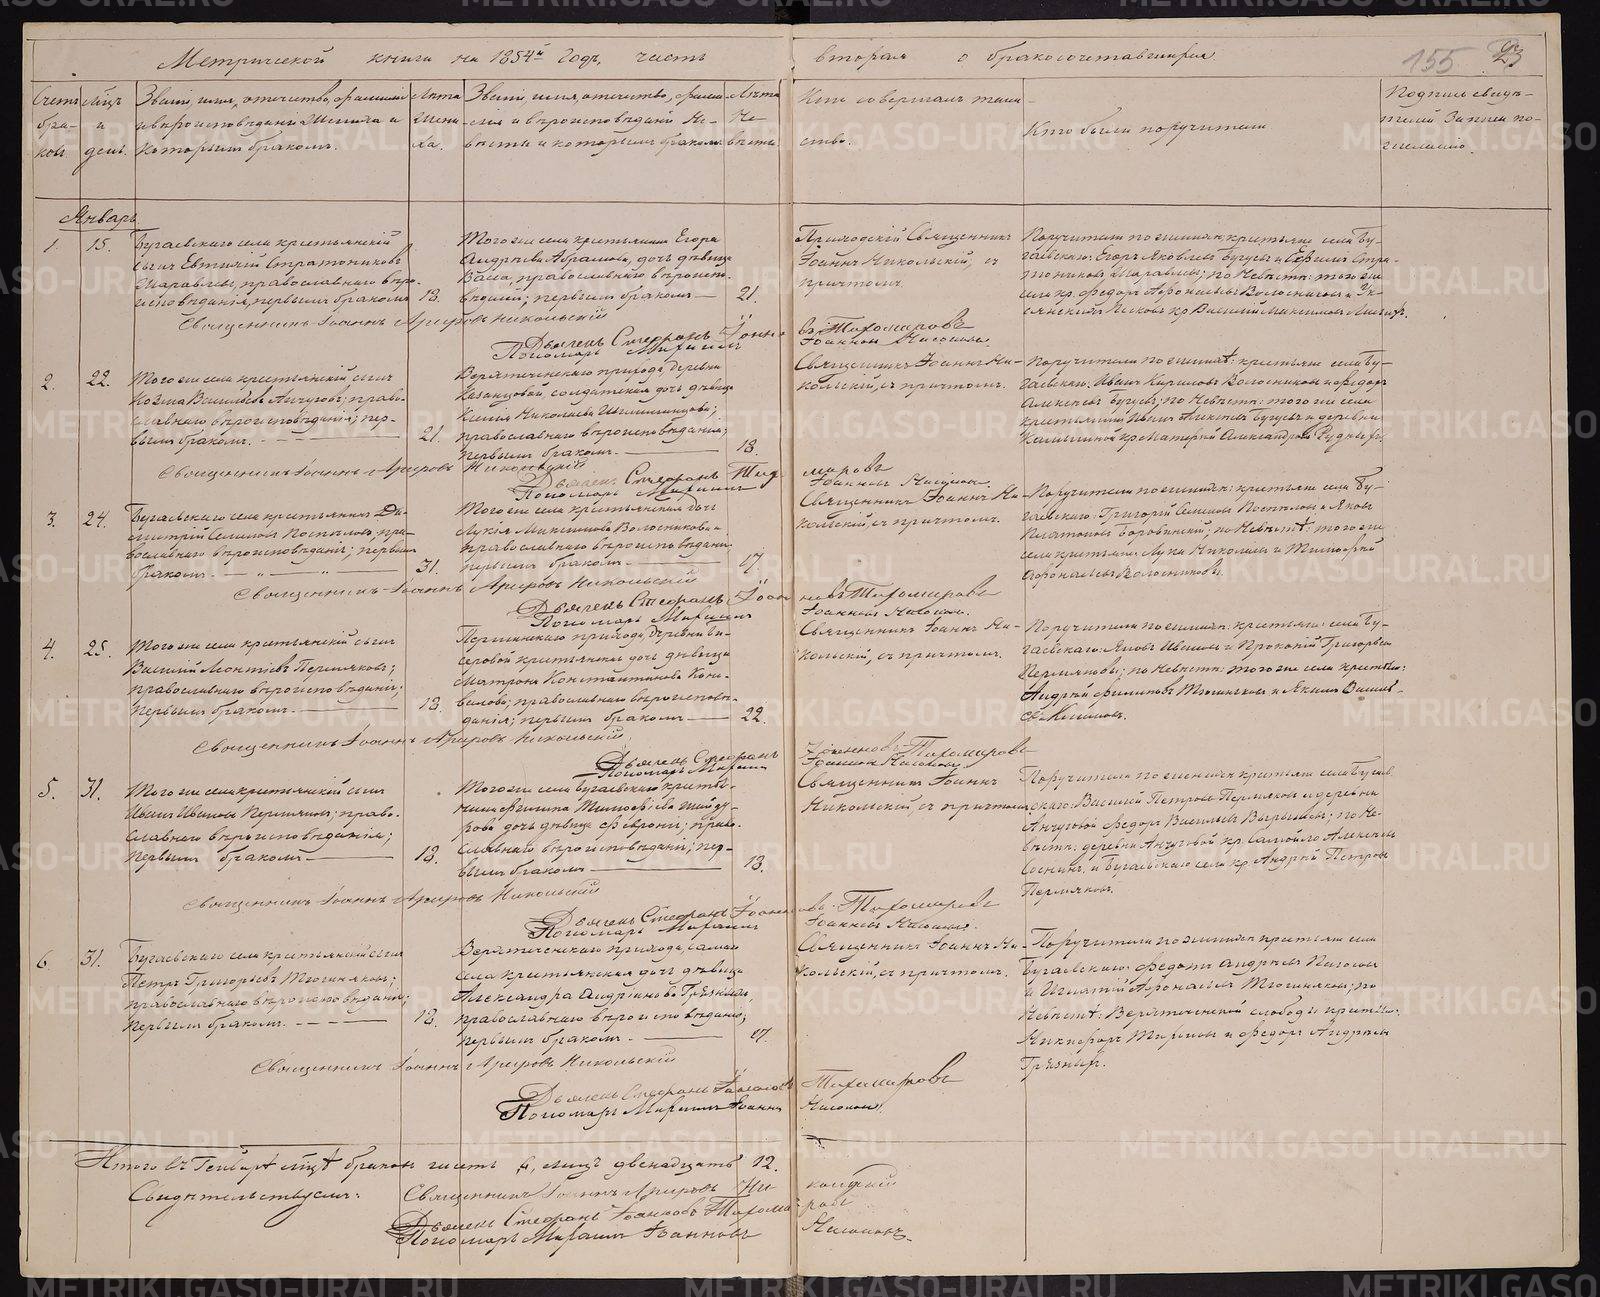 Метрической книги на 1854й Годъ, часть вторая о бракосочетавшихся
155
23
Счетъ бра- ковъ
Мѣц. и день.
Званіе, имя, отчество, фамилія
и вѣроисповѣданіе Жениха и
которымъ бракомъ.
Лѣта
Жени-
ха.
Званіе, имя, отчество, фами-
лія и вѣроисповѣданіе Не-
вѣсты и которымъ бракомъ
Лѣта
Не-
вѣсты
Кто совершалъ таин-
ство.
Кто были поручители
Подпись свидѣ-
телей Записи по-
желанію.
Январь
1. 15.
Бугаевскаго села крестьянскій
сынъ Евтихій Стратониковъ
православнаго вѣро-
исповѣданія, первымъ бракомъ 18.
Того же села крестьянина Егора
Андреева Абрамова, дочь дѣвица
Васса, православнаго вѣроиспо-
вѣданія; первымъ бракомъ — 21.
Приходскій Священникъ
Іоаннъ Никольскій, съ
причтомъ.
Поручители по женихѣ крестьяне села Бу-
гаевскаго: Егоръ Яковлевъ Бугуевъ и Ефимъ Стра-
тониковъ по Невѣстѣ: того же
села кр. Федоръ Афонасьевъ Волосниковъ и
Василій Максимовъ
Священникъ Іоаннъ Агировъ Никольскій
Дьячекъ Стефанъ Іоанновъ Тихомировъ
Пономарь Михаилъ Іоанновъ Насоновъ.
2. 22.
Того же села крестьянскій сынъ
Козма Васильевъ Анчуговъ; право-
славнаго вѣроисповѣданія; пер-
вымъ бракомъ. — 21.
Верятченскаго прихода, деревни
Казанцовой, солдатская дочь дѣвица
Ксенія Николаева
православнаго вѣроисповѣданія;
первымъ бракомъ. — 18.
Священникъ Іоаннъ Ни-
кольскій, съ причтомъ.
Поручители по женихѣ: крестьяне села Бу-
гаевскаго: Иванъ Кириловъ Волосниковъ и Федоръ
Алексѣевъ Бугуевъ; по Невѣстѣ: того же села
крестьянинъ Иванъ Алексѣевъ Бугуевъ и деревни
Александровъ
Священникъ Іоаннъ Агировъ Никольскій
Дьячекъ Стефанъ Тихомировъ
Пономарь Михаилъ Іоанновъ Насоновъ.
3. 24.
Бугаевскаго села крестьянинъ Ди-
митрій Семеновъ Поспѣловъ, пра-
вославнаго вѣроисповѣданія; первымъ
бракомъ. — „ — 31.
Того же села крестьянская дочь
Лукія Максимова Волосникова
православнаго вѣроисповѣданія
первымъ бракомъ. — 17.
Священникъ Іоаннъ Ни-
кольскій, съ причтомъ.
Поручители по женихѣ: крестьяне села Бу-
гаевскаго: Григорій Семеновъ Поспѣловъ и Яковъ
Платоновъ Боровинскій; по Невѣстѣ: того же
села крестьяне: Лука Николаевъ и Тимофей
Афонасьевъ Волосниковы.
Священникъ Іоаннъ Агировъ Никольскій
Дьячекъ Стефанъ Іоанновъ Тихомировъ
Пономарь Михаилъ Іоанновъ Насоновъ.
4. 25.
Того же села крестьянскій сынъ
Василій Леонтіевъ Пермяковъ;
православнаго вѣроисповѣданія;
первымъ бракомъ. — 18.
прихода, деревни Би-
серовой крестьянская дочь дѣвица
Матрона Константинова Коно-
валова; православнаго вѣроисповѣ-
данія; первымъ бракомъ — 22.
Священникъ Іоаннъ Ни-
кольскій, съ причтомъ.
Поручители по женихѣ: крестьяне: села Бу-
гаевскаго: Яковъ Ивановъ и Прокопій Григорьевъ
Пермяковы; по Невѣстѣ: того же села крестьяне:
Андрей Филиповъ Тюгинковъ и Якимъ Василь-
евъ
Священникъ Іоаннъ Агировъ Никольскій.
Дьячекъ Стефанъ Іоанновъ Тихомировъ
Пономарь Михаилъ Іоанновъ Насоновъ.
5. 31.
Того же села крестьянскій сынъ
Иванъ Ивановъ Пермяковъ; право-
славнаго вѣроисповѣданія;
первымъ бракомъ — 18.
Того же села Бугаевскаго крестья-
нина Филипа Тимофѣева Шайду-
рова дочь дѣвица Февронія; право-
славнаго вѣроисповѣданія; пер-
вымъ бракомъ — 18.
Священникъ Іоаннъ
Никольскій, съ причтомъ
Поручители по женихѣ крестьяне села Бугаев-
скаго: Василій Петровъ Пермяковъ и деревни
Анчуговой Федоръ Васильевъ по Не-
вѣстѣ: деревни Анчуговой кр. Самойло Алексѣевъ
Соснинъ, и Бугаевскаго села кр. Андрей Петровъ
Пермяковъ.
Священникъ Іоаннъ Агировъ Никольскій
Дьячекъ Стефанъ Іоанновъ Тихомировъ
Пономарь Михаилъ Іоанновъ Насоновъ.
6. 31.
Бугаевскаго села крестьянскій сынъ
Петръ Григорьевъ Тюгинковъ;
православнаго вѣроисповѣданія;
первымъ бракомъ. — 18.
Верятченскаго прихода, самаго
села крестьянская дочь дѣвица
Александра Андріанова Грязныхъ,
православнаго вѣроисповѣданія;
первымъ бракомъ. — 17.
Священникъ Іоаннъ Ни-
кольскій, съ причтомъ.
Поручители по женихѣ крестьяне села
Бугаевскаго: Федотъ Андреевъ
и Игнатій Афонасьевъ Тюгинковъ; по
Невѣстѣ: Верятченской слободы крестьяне:
Никифоръ и Федоръ Андреевъ
Грязныхъ.
Священникъ Іоаннъ Агировъ Никольскій
Дьячекъ Стефанъ Іоанновъ Тихомировъ
Пономарь Михаилъ Іоанновъ Насоновъ.
Итого въ Генварѣ мѣцѣ браковъ шесть 6, лицъ двенадцать 12.
Свидѣтельствуемъ: Священникъ Іоаннъ Агировъ Никольскій
Дьячекъ Стефанъ Іоанновъ Тихомировъ
Пономарь Михаилъ Іоанновъ Насоновъ.
METRIKI.GASO-URAL.RU